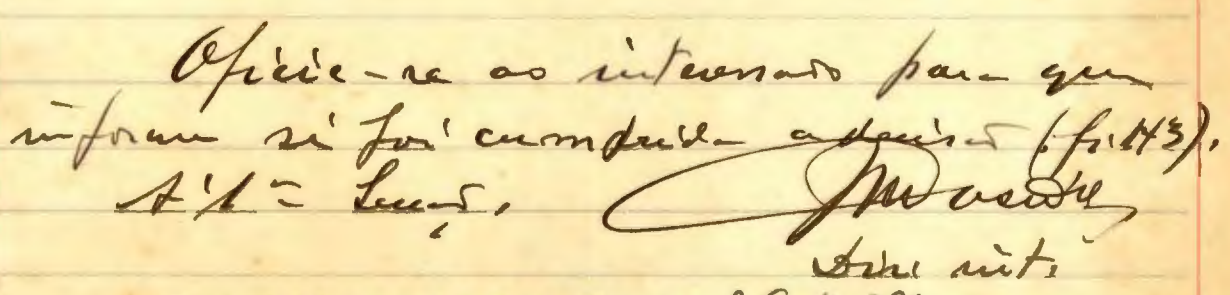 Oficie-se ao interessado para que
informe si foi cumprida a decisão (fs. 143).
A' 1ª Secção,
Dir. int.